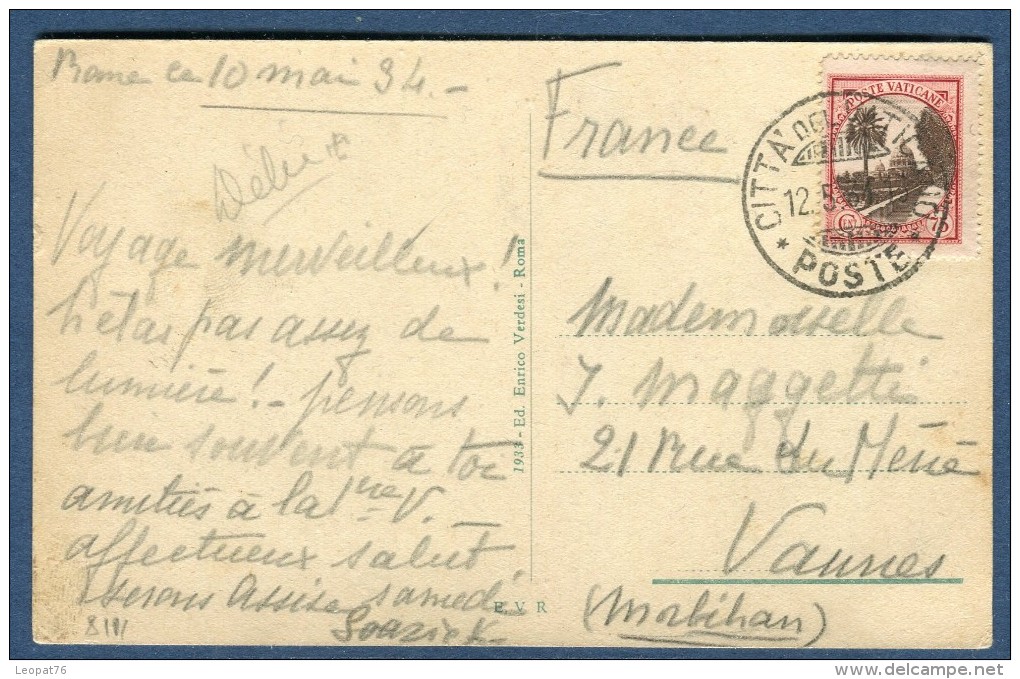 Rome ce 10 mai 34.-
France
POSTE VATICANE
CENT 75
CITTA' DEL VATICANO
12.5.34
* POSTE *
Voyage merveilleux !
hélas pas assez de
lumière ! - pensons
bien souvent à toi
amitiés à la V.
affectueux salut.
serons Assise samedi
Soazick
1933 - Ed. Enrico Verdesi - Roma
E. V. R
Mademoiselle
Y. Maggetti
21 rue du Méné
Vannes
(Morbihan)
Leopat76
www.delcampe.net